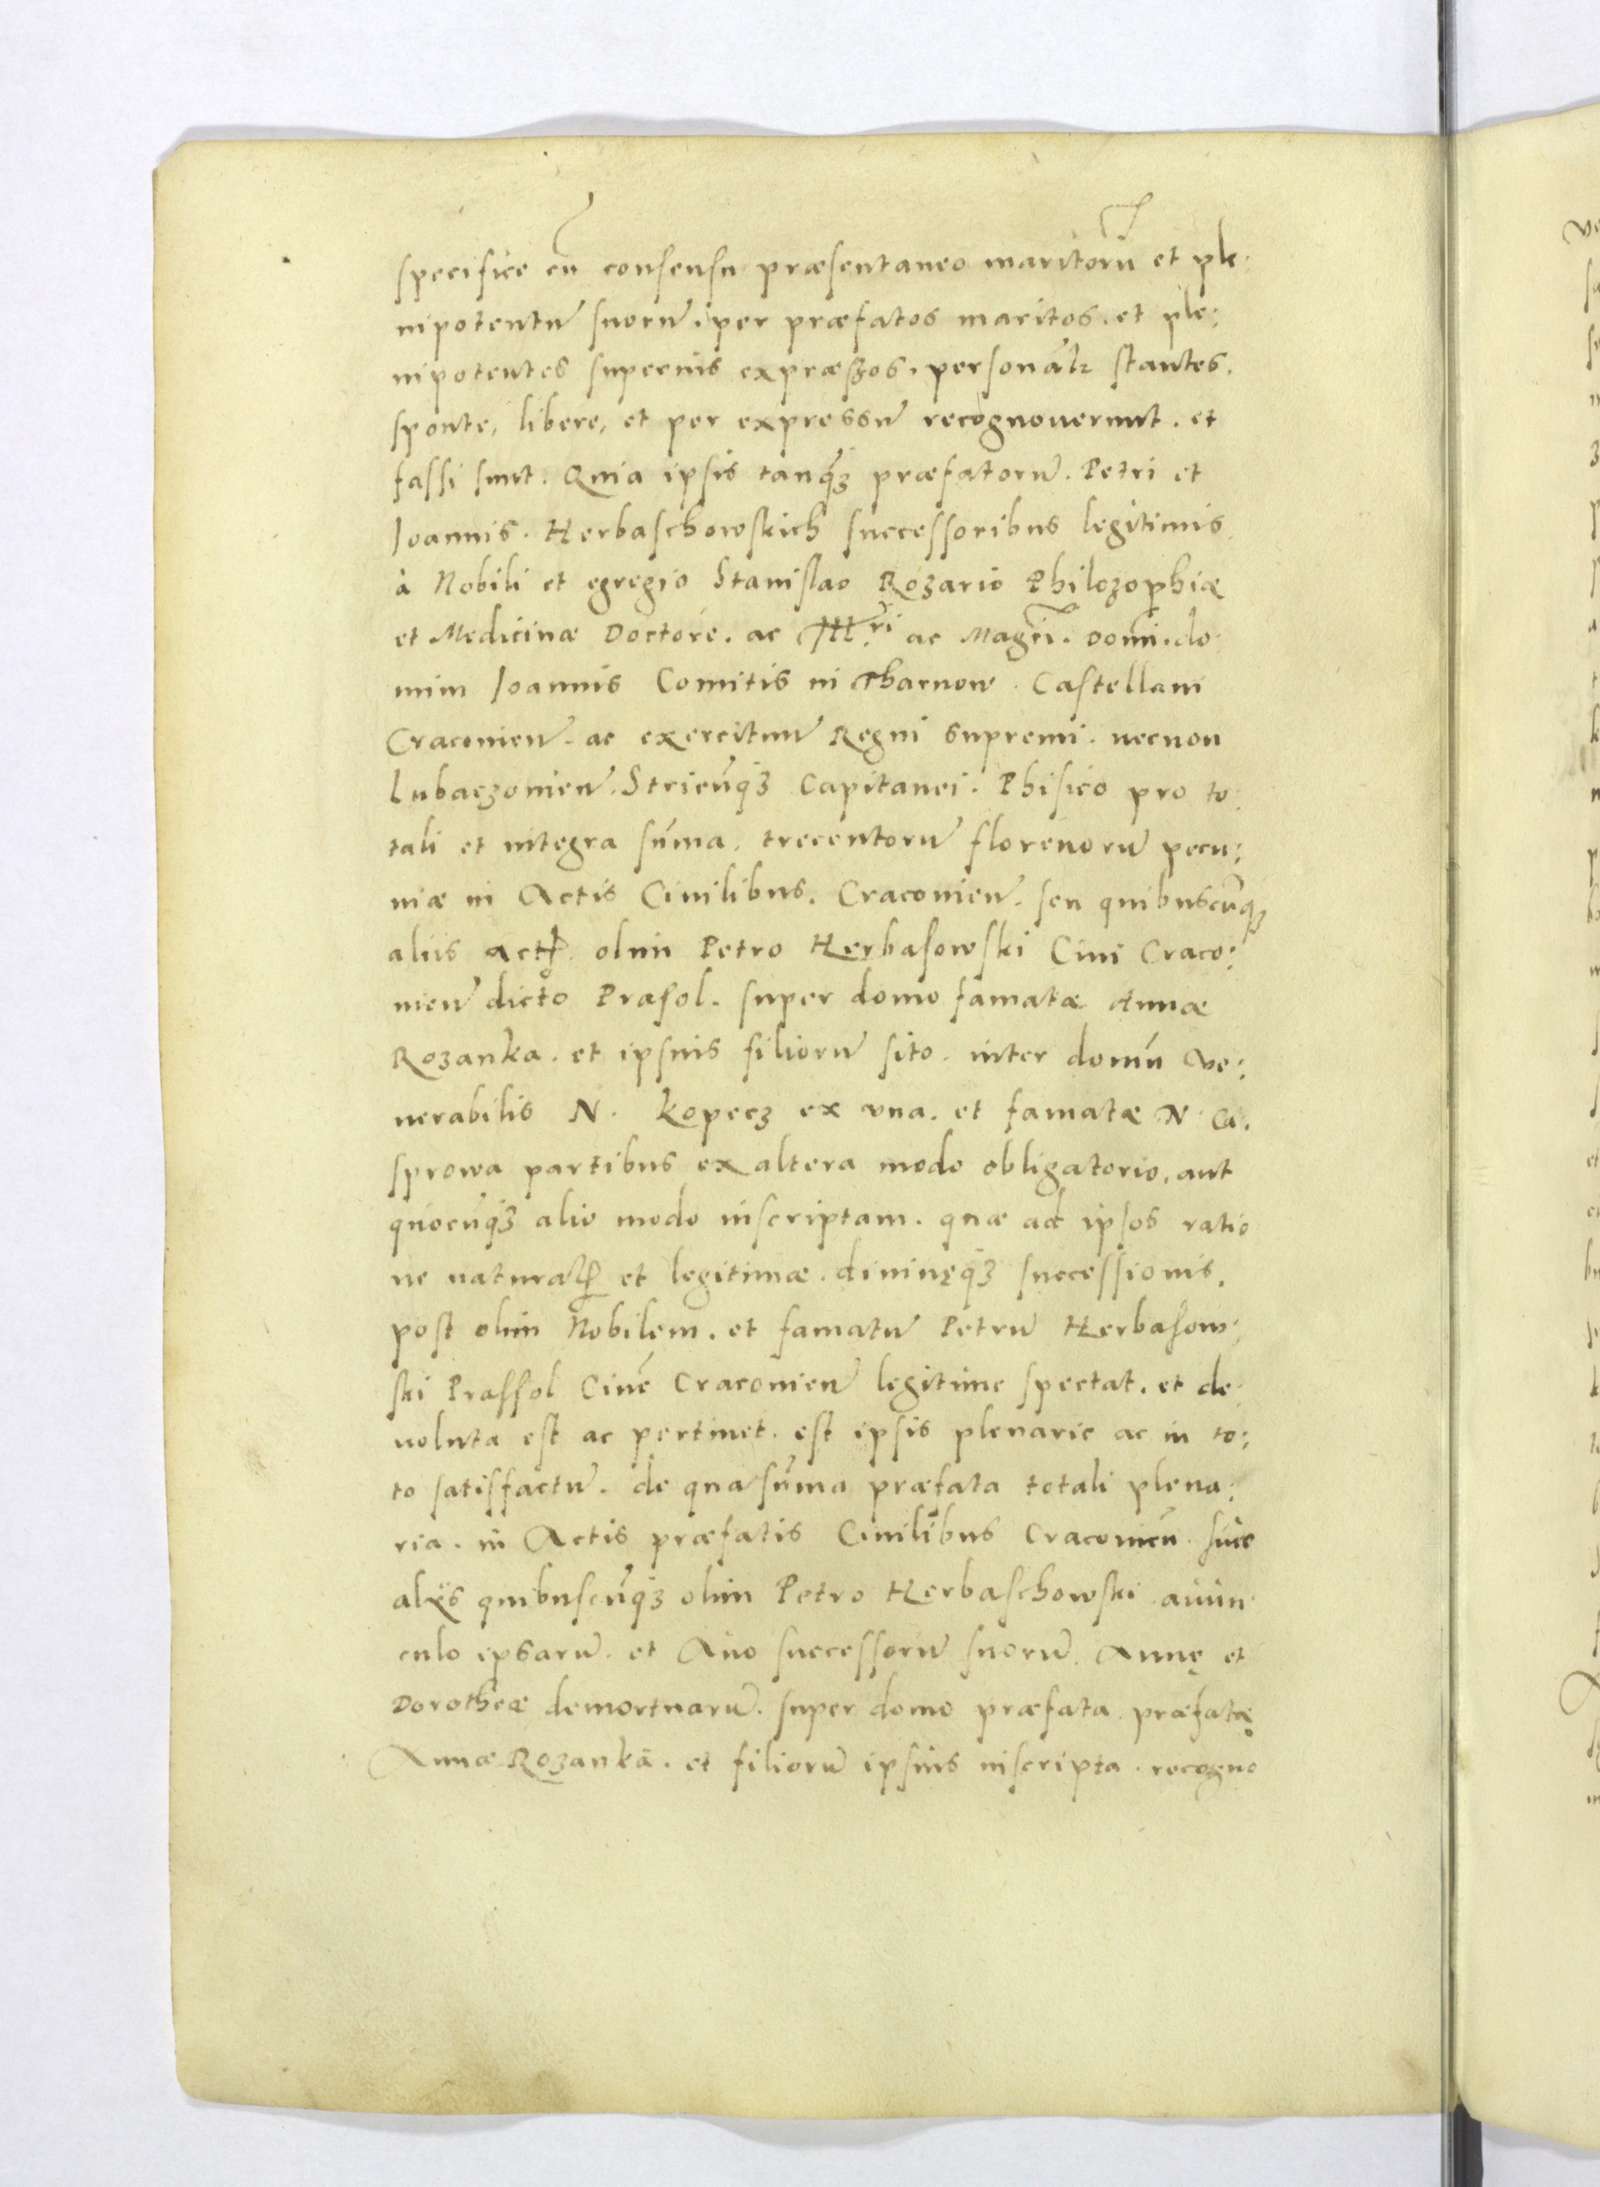 specifice cū consensu præsentaneo maritorū et ple:
nipotentū suorū. per præfatos maritos. et ple:
nipotentes superius expræssos. personalr stantes.
sponte, libere, et per expressū recognouerunt. et
fassi sunt. Quia ipsis tanqȝ præfatorū. Petri et
Joannis. Herbaschowskich successoribus legitimis
à Nobili et egregio Stanislao Rozario Philozophiæ
et Medicinæ Doctore. ac Ill.ri ac Magci. Domi. do
mini Joannis Comitis in Tharnow. Castellani
Craconień. ac exercituū Regni supremi. necnon
Lubaczonień. Stricūqȝ Capitanei. Phisico pro to:
tali et integra sūma. trecentorū florenorū pecu:
niæ in Actis Ciuilibus. Cracouień. seu quibuscūqȝ
aliis act. olim Petro Herbasowski Ciui Craco:
uień dicto Prasol. super domo famatæ Annæ
Rozanka. et ipsius filiorū sito. inter domū Ve:
nerabilis N. Kopecz ex vna. et famatæ N. Ca.
sprowa partibus ex altera modo obligatorio, aut
quocūqȝ alio modo inscriptam. quæ ad ipsos ratio
ne natural et legitimæ. diuinęqȝ successionis.
post olim Nobilem. et famatū Petrū Herbasow:
ski Prassol Ciuē Cracouień legitime spectat. et de:
uoluta est ac pertinet. est ipsis plenarie ac in to:
to satisfactū. de qua sūma præfata totali plena:
ria. in Actis præfatis Ciuilibus Cracouień. siue
alijs quibuscūqȝ olim Petro Herbaschowski auun
culo ipsarū. et Auo successorū suorū. Annę et
Dorotheæ demortuarū. super domo præfata. præfatæ
Annæ Rozanka. et filiorū ipsius inscripta. recogno